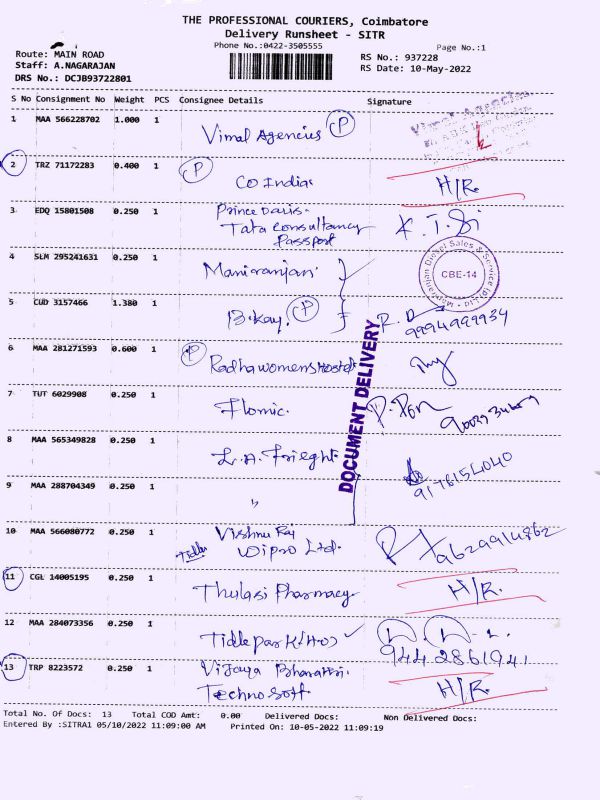 THE PROFESSIONAL COURIERS, Coimbatore
Delivery Runsheet - SITR
Phone No.:0422-3505555
Page No.:1
Route: MAIN ROAD
Staff: A.NAGARAJAN
DRS No.: DCJB93722801
RS No.: 937228
RS Date: 10-May-2022
S No Consignment No Weight PCS Consignee Details Signature
1 MAA 566228702 1.000 1
Vimal Agencies P
Vimal Agencies
2 TRZ 71172283 0.400 1 P
CO India. H/R.
3 EDQ 15801508 0.250 1 Prince Davis.
Tata Consultancy
Passport
4 SLM 295241631 0.250 1 Maniranjan.
Maniranjan Diesel Sales & Service (p) Ltd.
CBE-14
5 CUD 3157466 1.380 1
B.Kay. P
9994999934
6 MAA 281271593 0.600 1 P
Radha womens Hostel
DOCUMENT DELIVERY
7 TUT 6029908 0.250 1
Flomic.
8 MAA 565349828 0.250 1
L.A. Frieght.
9176154040
9 MAA 288704349 0.250 1 "
10 MAA 566080772 0.250 1 Vishnu Raj
Tidle Wipro Ltd.
9629914862
11 CGL 14005195 0.250 1
Thulasi Pharmacy H/R.
12 MAA 284073356 0.250 1
Tidle park(HO)
9442861941
13 TRP 8223572 0.250 1 Vijaya Bharathi.
Techno Soft H/R.
Total No. Of Docs: 13 Total COD Amt: 0.00 Delivered Docs: Non Delivered Docs:
Entered By :SITRA1 05/10/2022 11:09:00 AM Printed On: 10-05-2022 11:09:19